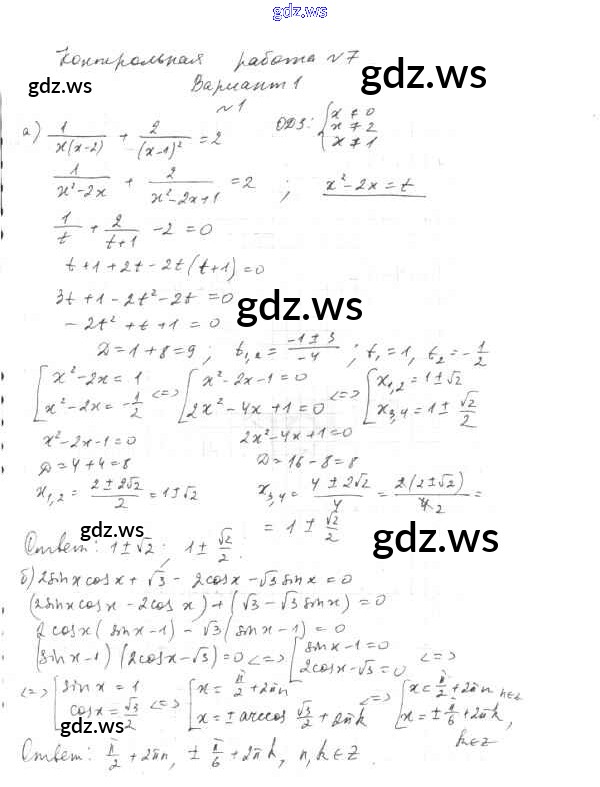 gdz.ws
Контрольная работа №7
Вариант 1
№1
а) 1/(x(x-2)) + 2/(x-1)² = 2 ОДЗ: { x ≠ 0 x ≠ 2 x ≠ 1
1/(x²-2x) + 2/(x²-2x+1) = 2 ; x²-2x = t
1/t + 2/(t+1) - 2 = 0
t+1+2t-2t(t+1)=0
3t+1-2t²-2t=0
-2t²+t+1=0
D=1+8=9; t₁,₂ = (-1±3)/-4 ; t₁=1, t₂=-1/2
[ x²-2x=1 x²-2x=-1/2 <=> [ x²-2x-1=0 2x²-4x+1=0 <=> [ x₁,₂=1±√2 x₃,₄=1±√2/2
x²-2x-1=0 2x²-4x+1=0
D=4+4=8 D=16-8=8
x₁,₂ = (2±2√2)/2 = 1±√2 x₃,₄ = (4±2√2)/4 = 2(2±√2)/4 2 =
= 1±√2/2
Ответ: 1±√2; 1±√2/2.
б) 2sinxcosx+√3-2cosx-√3sinx=0
(2sinxcosx-2cosx)+(√3-√3sinx)=0
2cosx(sinx-1)-√3(sinx-1)=0
(sinx-1)(2cosx-√3)=0 <=> [ sinx-1=0 2cosx-√3=0 <=>
<=> [ sinx=1 cosx=√3/2 <=> [ x=π/2+2πn x=±arccos √3/2+2πk <=> [ x=π/2+2πn, n∈Z x=±π/6+2πk, k∈Z
Ответ: π/2+2πn, ±π/6+2πk, n,k∈Z.
gdz.ws
gdz.ws
gdz.ws
gdz.ws
gdz.ws
gdz.ws
gdz.ws
gdz.ws